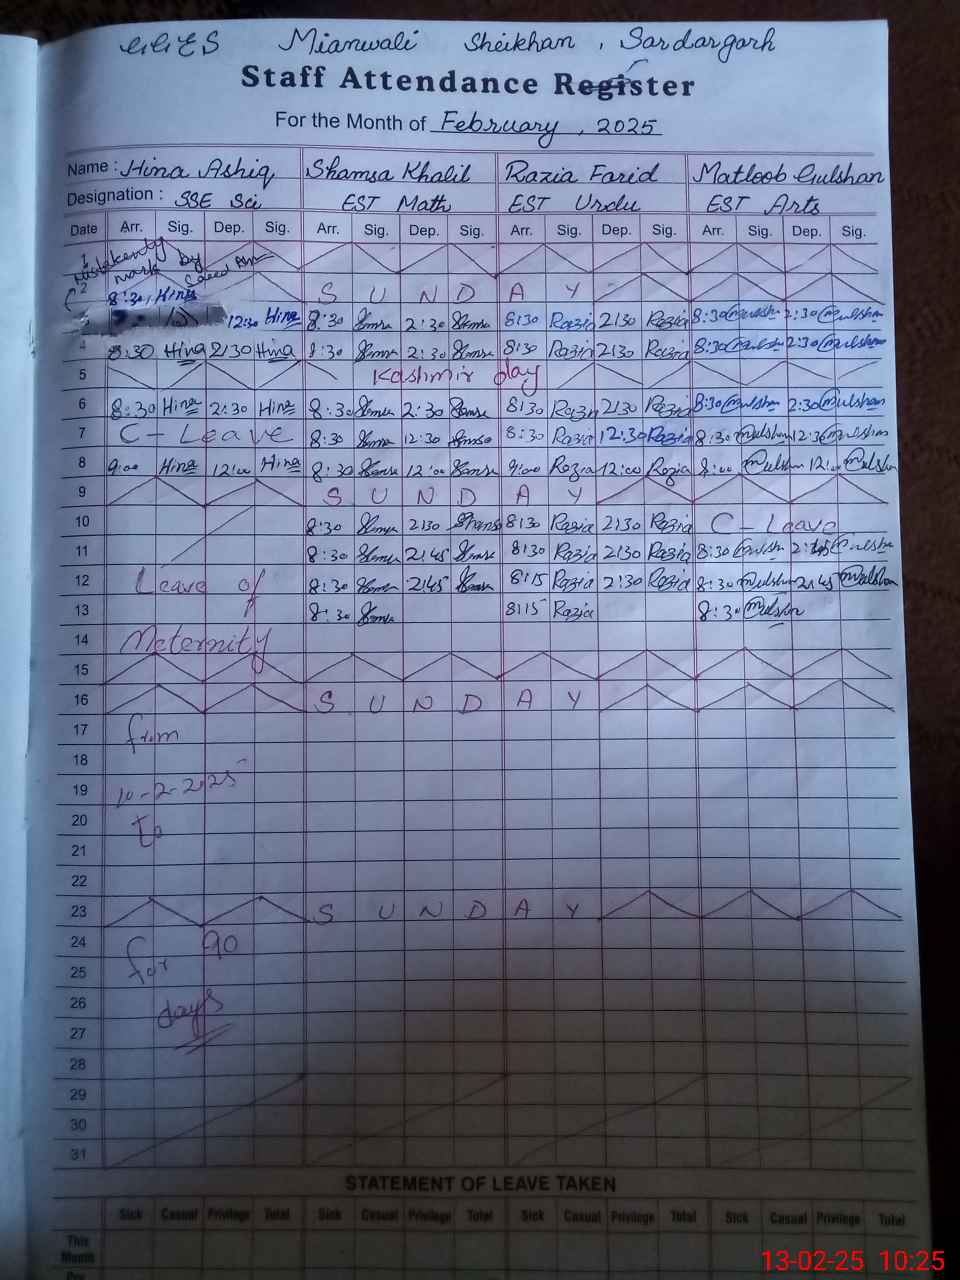 GGES Mianwali Sheikhan, Sardargarh
Staff Attendance Register
For the Month of February, 2025
Name : Hina Ashiq Shamsa Khalil Razia Farid Matloob Gulshan
Designation : SSE Sci EST Math EST Urdu EST Arts
Date Arr. Sig. Dep. Sig. Arr. Sig. Dep. Sig. Arr. Sig. Dep. Sig. Arr. Sig. Dep. Sig.
1 Mistakenly
mark by
2 8:30, Hina S U N D A Y
12:30 Hina 8:30 2:30 8:30 Razia 2:30 Razia 8:30 Gulshan 2:30 Gulshan
4 8:30 Hina 2:30 Hina 8:30 2:30 8:30 Razia 2:30 Razia 8:30 Gulshan 2:30 Gulshan
5 Kashmir day
6 8:30 Hina 2:30 Hina 8:30 2:30 8:30 Razia 2:30 Razia 8:30 Gulshan 2:30 Gulshan
7 C - Leave 8:30 12:30 8:30 Razia 12:30 Razia 8:30 Gulshan 12:30 Gulshan
8 9:00 Hina 12:00 Hina 8:30 12:00 9:00 Razia 12:00 Razia 8:00 Gulshan 12:00 Gulshan
9 S U N D A Y
10 8:30 2:30 Shamsa 8:30 Razia 2:30 Razia C - Leave
11 8:30 2:45 8:30 Razia 2:30 Razia 8:30 Gulshan 2:45 Gulshan
12 Leave of 8:30 2:45 8:15 Razia 2:30 Razia 8:30 Gulshan 2:45 Gulshan
13 8:30 8:15 Razia 8:30 Gulshan
14 Meternity
15
16 S U N D A Y
17 from
18
19 10-2-2025
20 to
21
22
23 S U N D A Y
24 for 90
25
26 days
27
28
29
30
31
STATEMENT OF LEAVE TAKEN
Sick Casual Privilege Total Sick Casual Privilege Total Sick Casual Privilege Total Sick Casual Privilege Total
This
Month
13-02-25 10:25